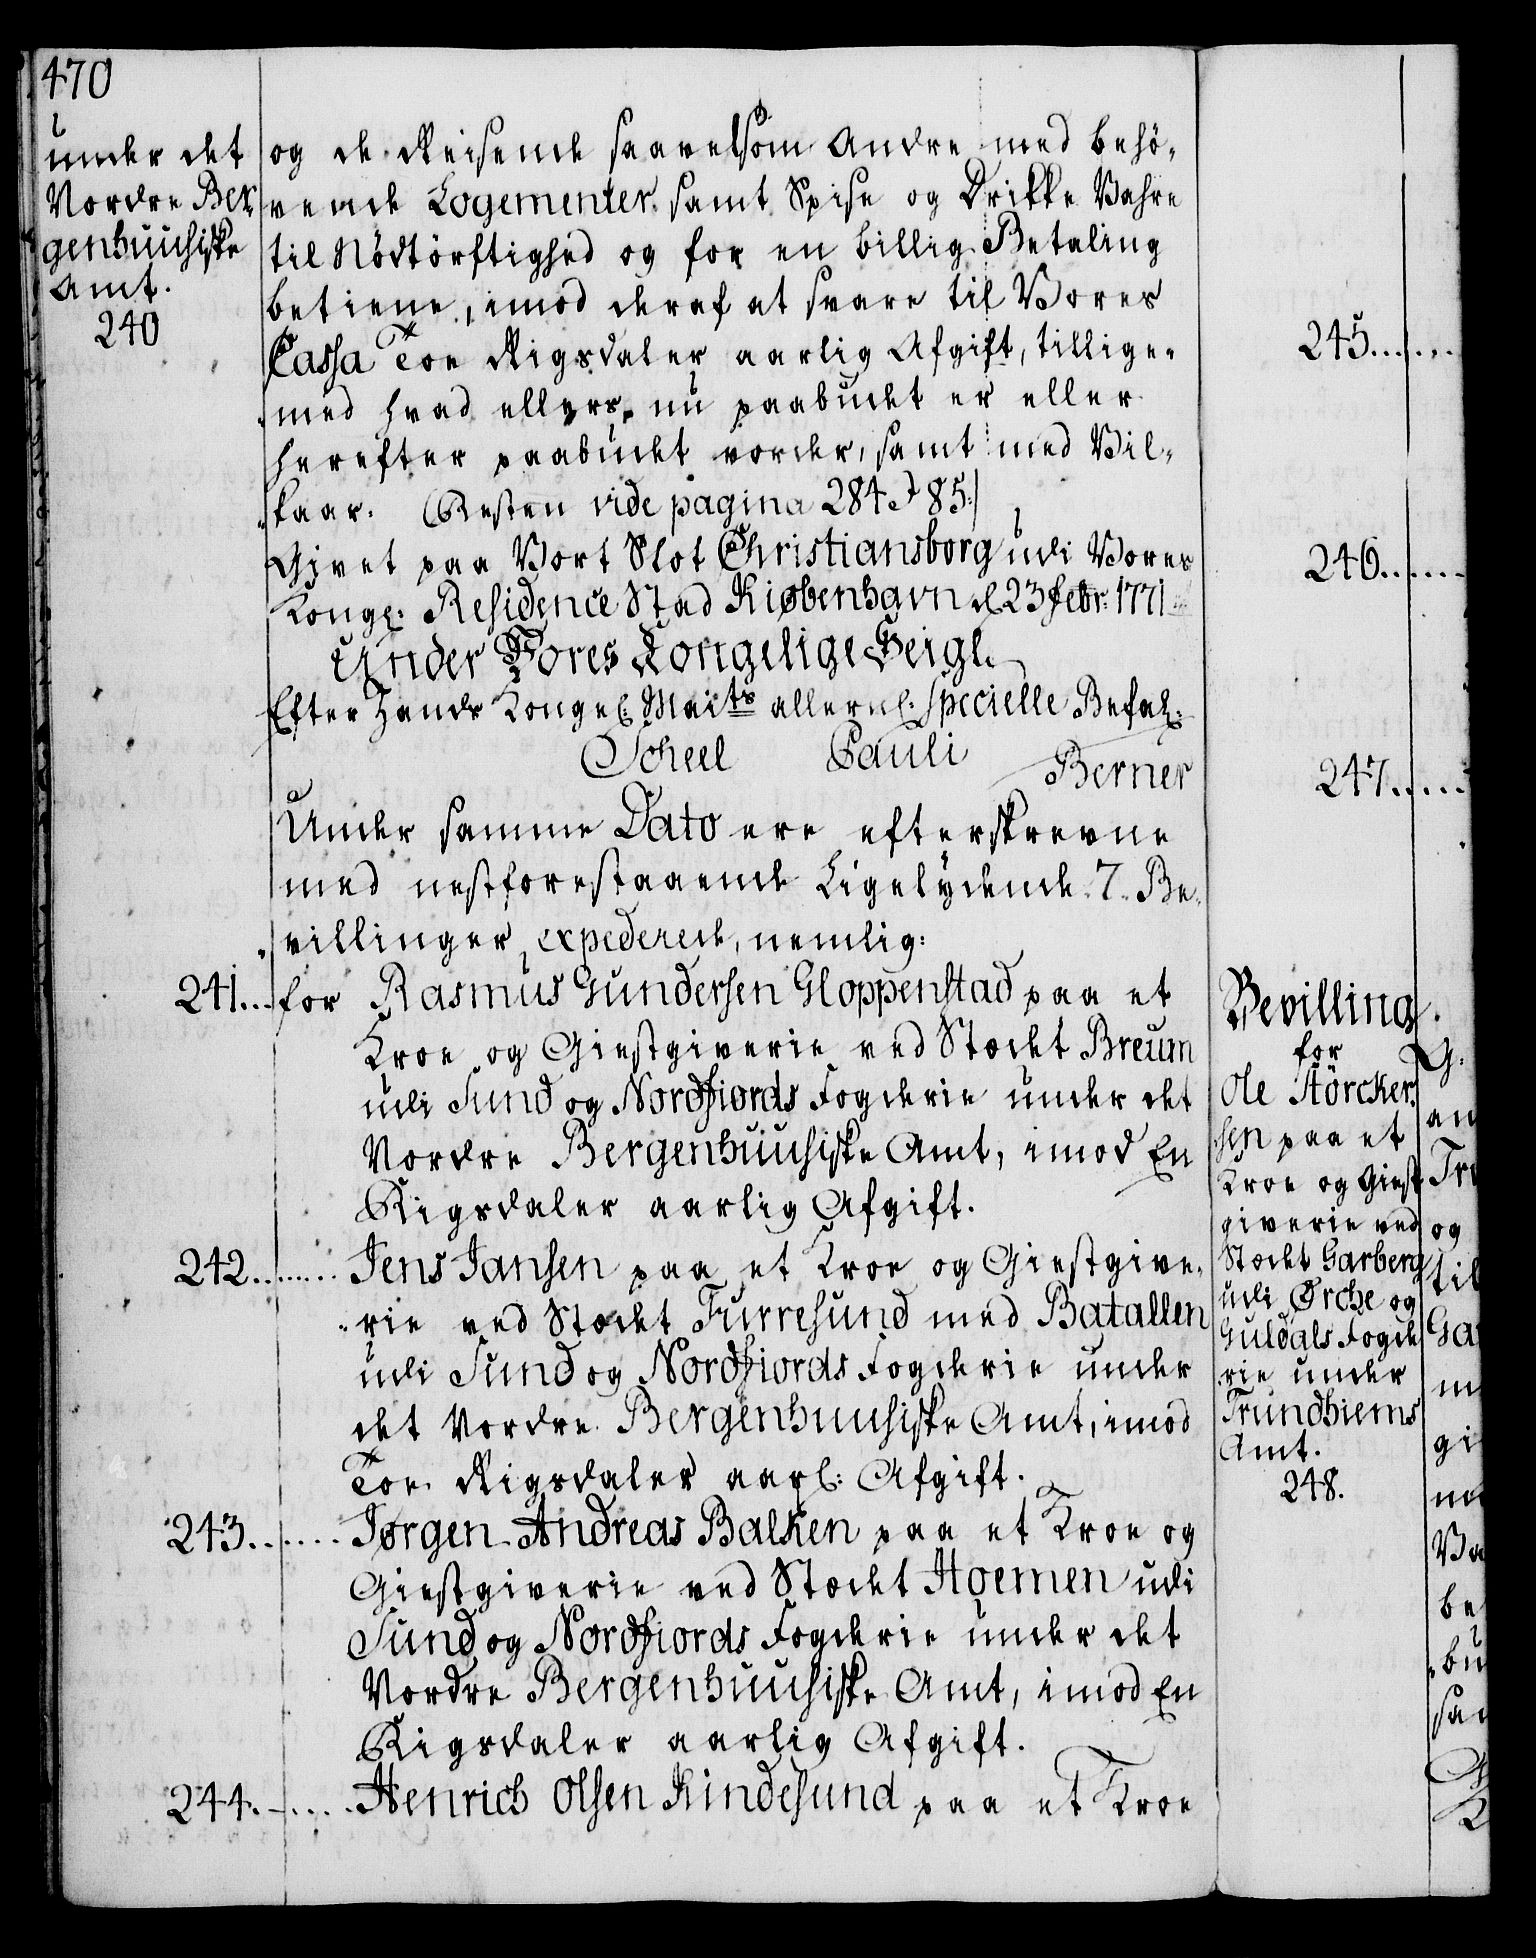 470
under det
Nordre Ber,
genhuusiske
Amt.
240
og de Reisende saavelsom Andre med behö,
vende Logementer samt Spise og Drikke Vahre
til Nödtörftighed og for en billig Betaling
betiene, imod deraf at svare til Vores
Cassa Toe Rigsdaler aarlig Afgift, tillige,
med hvad ellers nu paabudet er eller
herefter paabudet vorder, samt med Vil,
kaar. (Resten vide pagina 284 & 85:/
Givet paa Vort Slot Christiansborg udi Vores
Kongl. Residence Stad Kiøbenhavn d 23 Febr: 1771
Under Vores Kongelige Seigl.
Efter Hands Kongel: Maits allern[l]: specielle Befal:
Scheel Pauli Berner
Under samme Dato ere efterskrevne
med nestforestaaende Ligelÿdende 7. Be,
villinger expederede, nemlig:
241... for Rasmus Gundersen Gloppenstad paa et
Kroe og Giestgiverie ved Stædet Breum
udi Sund og Nordfiords Fogderie under det
Nordre Bergenhuusiske Amt, imod En
Rigsdaler aarlig Afgift.
242....... Jens Jansen paa et Kroe og Giestgive,
rie ved Stædet Furresund med Batallen
udi Sund og Nordfiords Fogderie under
det Nordre Bergenhuusiske Amt, imod
Toe Rigsdaler aarl: Afgift.
243...... Jørgen Andreas Balken paa et Kroe og
Giestgiverie ved Stædet Hoemen udi
Sund og Nordfiords Fogderie under det
Nordre Bergenhuusiske Amt, imod En
Rigsdaler aarlig Afgift.
244...... Henrich Olsen Rindesund paa et Kroe
245......
246......
247......
Bevilling.
for
Ole Störcker,
sen paa et
Kroe og Giest
giverie ved
Stædet Garberg
udi Ørche og
Guldals Fogde
rie under
Trundhiems
Amt.
248.
G:
an
Tru
og
til
Gar
m
gi
no
Va
be
bu
sa